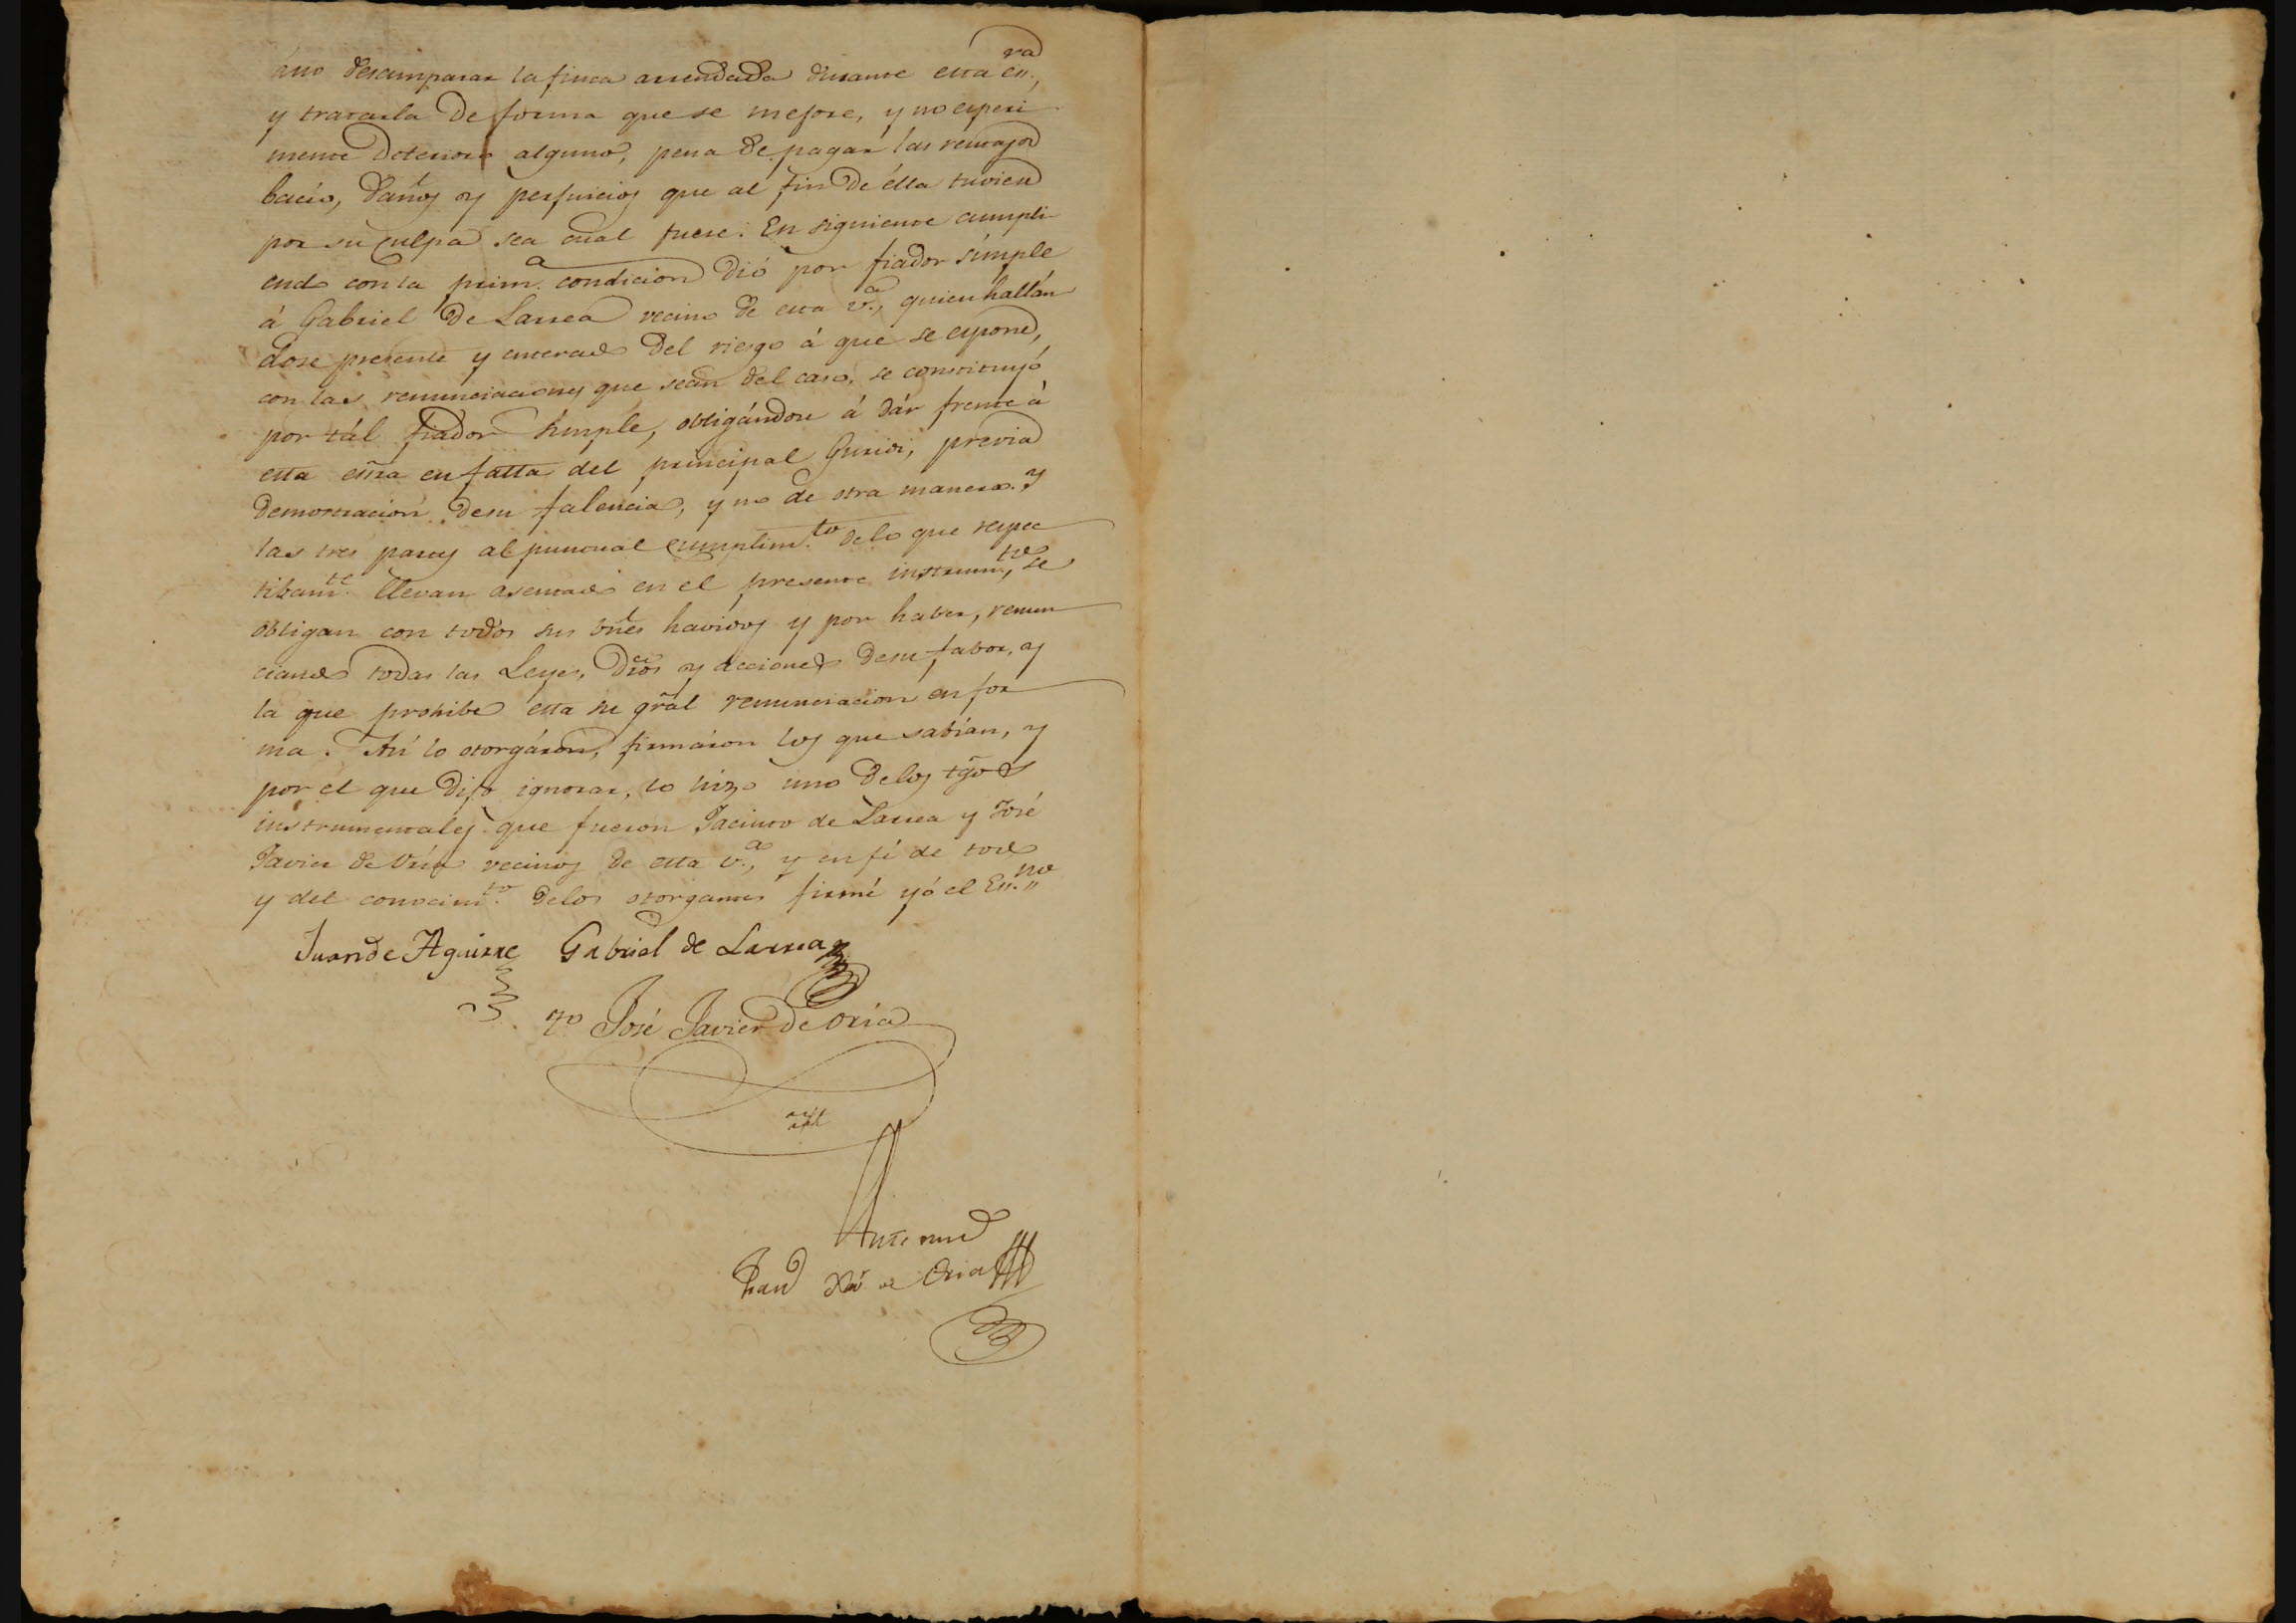 áno desamparar la finca arrendada durante esta es.ra,
y tratarla de forma que se mejore, y no experi
mente deterioro alguno, pena de pagar las
bacío, daños y perjuicios que al fin de élla tuviere
por su culpa sea cual fuere. En siguiente cumpli-
endo con la prim.a condicion dió por fiador simple
á Gabriel de Larrea vecino de esta v.a, quien hallán
dose presente y enterado del riesgo á que se expone,
con las renunciaciones que sean del caso, se constituyó
por tál fiador simple, obligándose á dár frente á
esta esĩra en falta del principal Guridi, previa
demostracion de su falencia, y no de otra manera. Y
las tres partes al puntual cumplim.to de lo que respec
tibam.te llevan asentado en el presente instrum.to, se
obligan con todos sus bñes havidos y por haber, renun
ciando todas las Leyes, Dr̃os y acciones de su fabor, y
la que prohibe esta su gr̃al renunciacion en for
ma. Así lo otorgáron, firmáron los que sabían, y
por el que dijo ignorar, lo hizo uno de los tg̃os
instrumentales que fueron Jacinto de Larrea y José
Javier de Oria vecinos de esta v.a, y en fé de todo
y del conocim.to de los otorgantes firmé yó el Es.no
Juan de Aguirre Gabriel de Larrea
T.o José Javier de Oria
Ante mi
Fran.co Xav.r de Oria